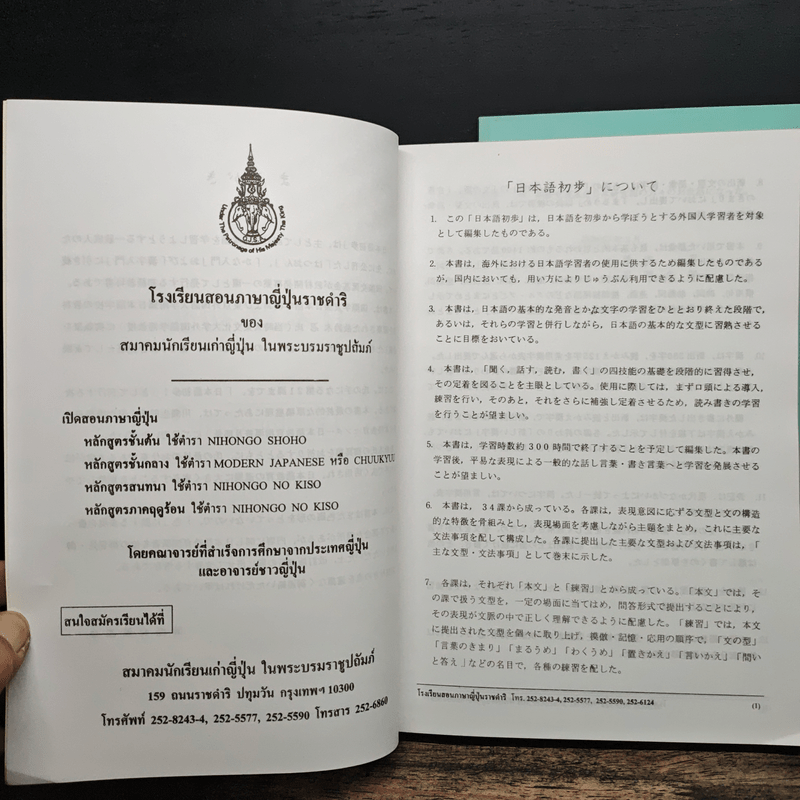 Under The Patronage of His Majesty The King
O.J.S.A.
โรงเรียนสอนภาษาญี่ปุ่นราชดำริ
ของ
สมาคมนักเรียนเก่าญี่ปุ่น ในพระบรมราชูปถัมภ์
เปิดสอนภาษาญี่ปุ่น
หลักสูตรชั้นต้น ใช้ตำรา NIHONGO SHOHO
หลักสูตรชั้นกลาง ใช้ตำรา MODERN JAPANESE หรือ CHUUKYUU
หลักสูตรสนทนา ใช้ตำรา NIHONGO NO KISO
หลักสูตรภาคฤดูร้อน ใช้ตำรา NIHONGO NO KISO
โดยคณาจารย์ที่สำเร็จการศึกษาจากประเทศญี่ปุ่น
และอาจารย์ชาวญี่ปุ่น
สนใจสมัครเรียนได้ที่
สมาคมนักเรียนเก่าญี่ปุ่น ในพระบรมราชูปถัมภ์
159 ถนนราชดำริ ปทุมวัน กรุงเทพฯ 10300
โทรศัพท์ 252-8243-4, 252-5577, 252-5590 โทรสาร 252-6860
「日本語初歩」について
1. この「日本語初歩」は，日本語を初歩から学ぼうとする外国人学習者を対象
として編集したものである。
2. 本書は，海外における日本語学習者の使用に供するため編集したものである
が，国内においても，用い方によりじゅうぶん利用できるように配慮した。
3. 本書は，日本語の基本的な発音とかな文字の学習をひととおり終えた段階で，
あるいは，それらの学習と併行しながら，日本語の基本的な文型に習熟させる
ことに目標をおいている。
4. 本書は，「聞く，話す，読む，書く」の四技能の基礎を段階的に習得させ，
その定着を図ることを主眼としている。使用に際しては，まず口頭による導入，
練習を行い，そのあと，それをさらに補強し定着させるため，読み書きの学習
を行うことが望ましい。
5. 本書は，学習時数約３００時間で終了することを予定して編集した。本書の
学習後，平易な表現による一般的な話し言葉・書き言葉へと学習を発展させる
ことが望ましい。
6. 本書は，３４課から成っている。各課は，表現意図に応ずる文型と文の構造
的な特徴を骨組みとし，表現場面を考慮しながら主題をまとめ，これに主要な
文法事項を配して構成した。各課に提出した主要な文型および文法事項は，「
主な文型・文法事項」として巻末に示した。
7. 各課は，それぞれ「本文」と「練習」とから成っている。「本文」では，そ
の課で扱う文型を，一定の場面に当てはめ，問答形式で提出することにより，
その表現が文脈の中で正しく理解できるように配慮した。「練習」では，本文
に提出された文型を個々に取り上げ，模倣・記憶・応用の順序で，「文の型」
「言葉のきまり」「まるうめ」「わくうめ」「置きかえ」「言いかえ」「問い
と答え」などの名目で，各種の練習を配した。
โรงเรียนสอนภาษาญี่ปุ่นราชดำริ โทร. 252-8243-4, 252-5577, 252-5590, 252-6124
(1)